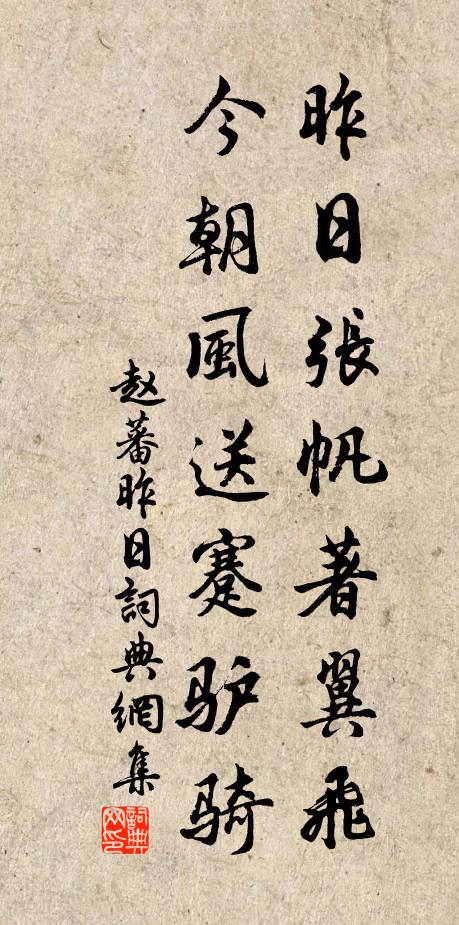 昨日張帆著翼飛
今朝風送蹇驴騎
赵蕃昨日詞典網集
詞典网印